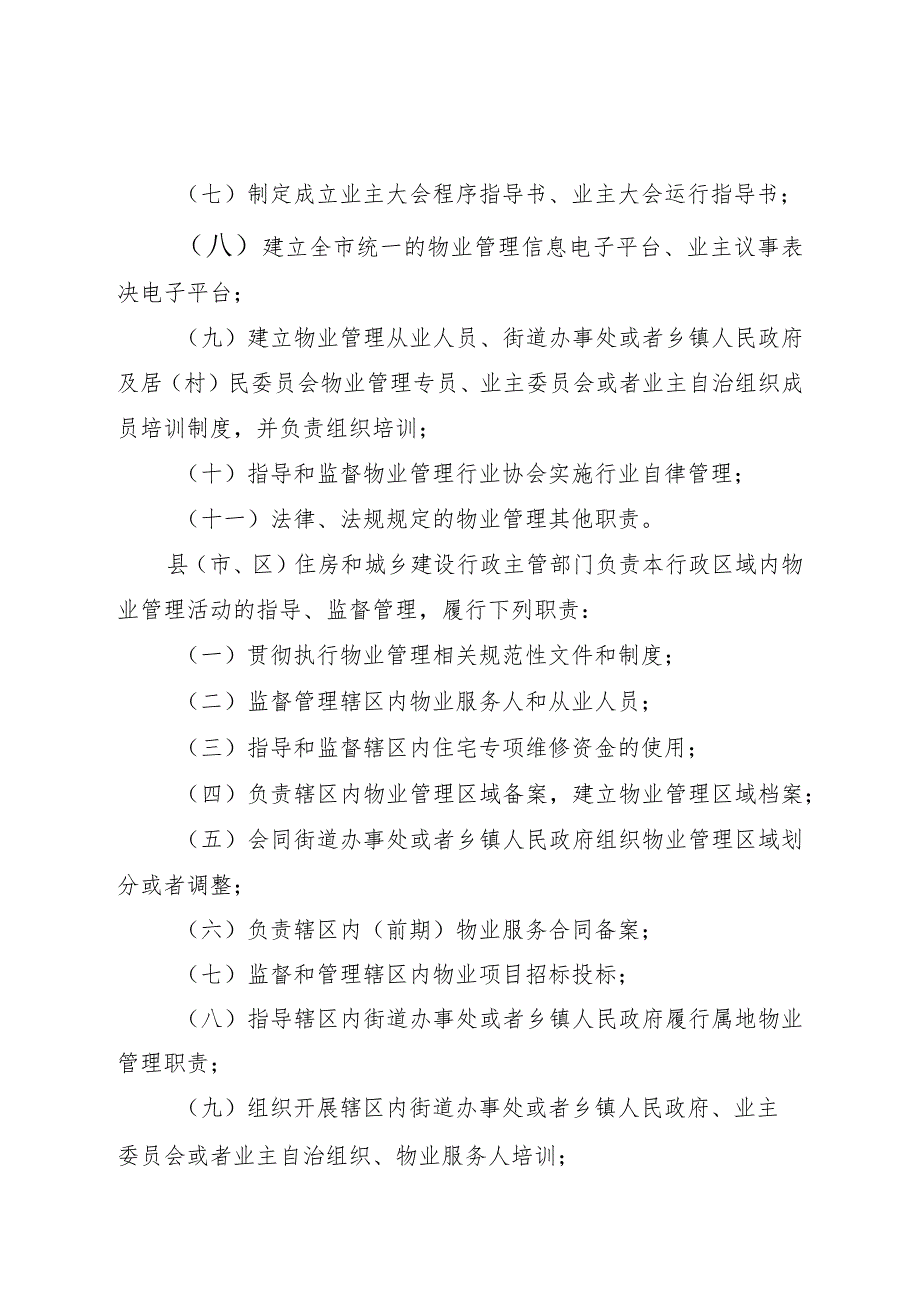 （七）制定成立业主大会程序指导书、业主大会运行指导书；
（八）建立全市统一的物业管理信息电子平台、业主议事表
决电子平台；
（九）建立物业管理从业人员、街道办事处或者乡镇人民政府
及居（村）民委员会物业管理专员、业主委员会或者业主自治组织成
员培训制度，并负责组织培训；
（十）指导和监督物业管理行业协会实施行业自律管理；
（十一）法律、法规规定的物业管理其他职责。
县（市、区）住房和城乡建设行政主管部门负责本行政区域内物
业管理活动的指导、监督管理，履行下列职责：
（一）贯彻执行物业管理相关规范性文件和制度；
（二）监督管理辖区内物业服务人和从业人员；
（三）指导和监督辖区内住宅专项维修资金的使用；
（四）负责辖区内物业管理区域备案，建立物业管理区域档案；
（五）会同街道办事处或者乡镇人民政府组织物业管理区域划
分或者调整；
（六）负责辖区内（前期）物业服务合同备案；
（七）监督和管理辖区内物业项目招标投标；
（八）指导辖区内街道办事处或者乡镇人民政府履行属地物业
管理职责；
（九）组织开展辖区内街道办事处或者乡镇人民政府、业主
委员会或者业主自治组织、物业服务人培训；